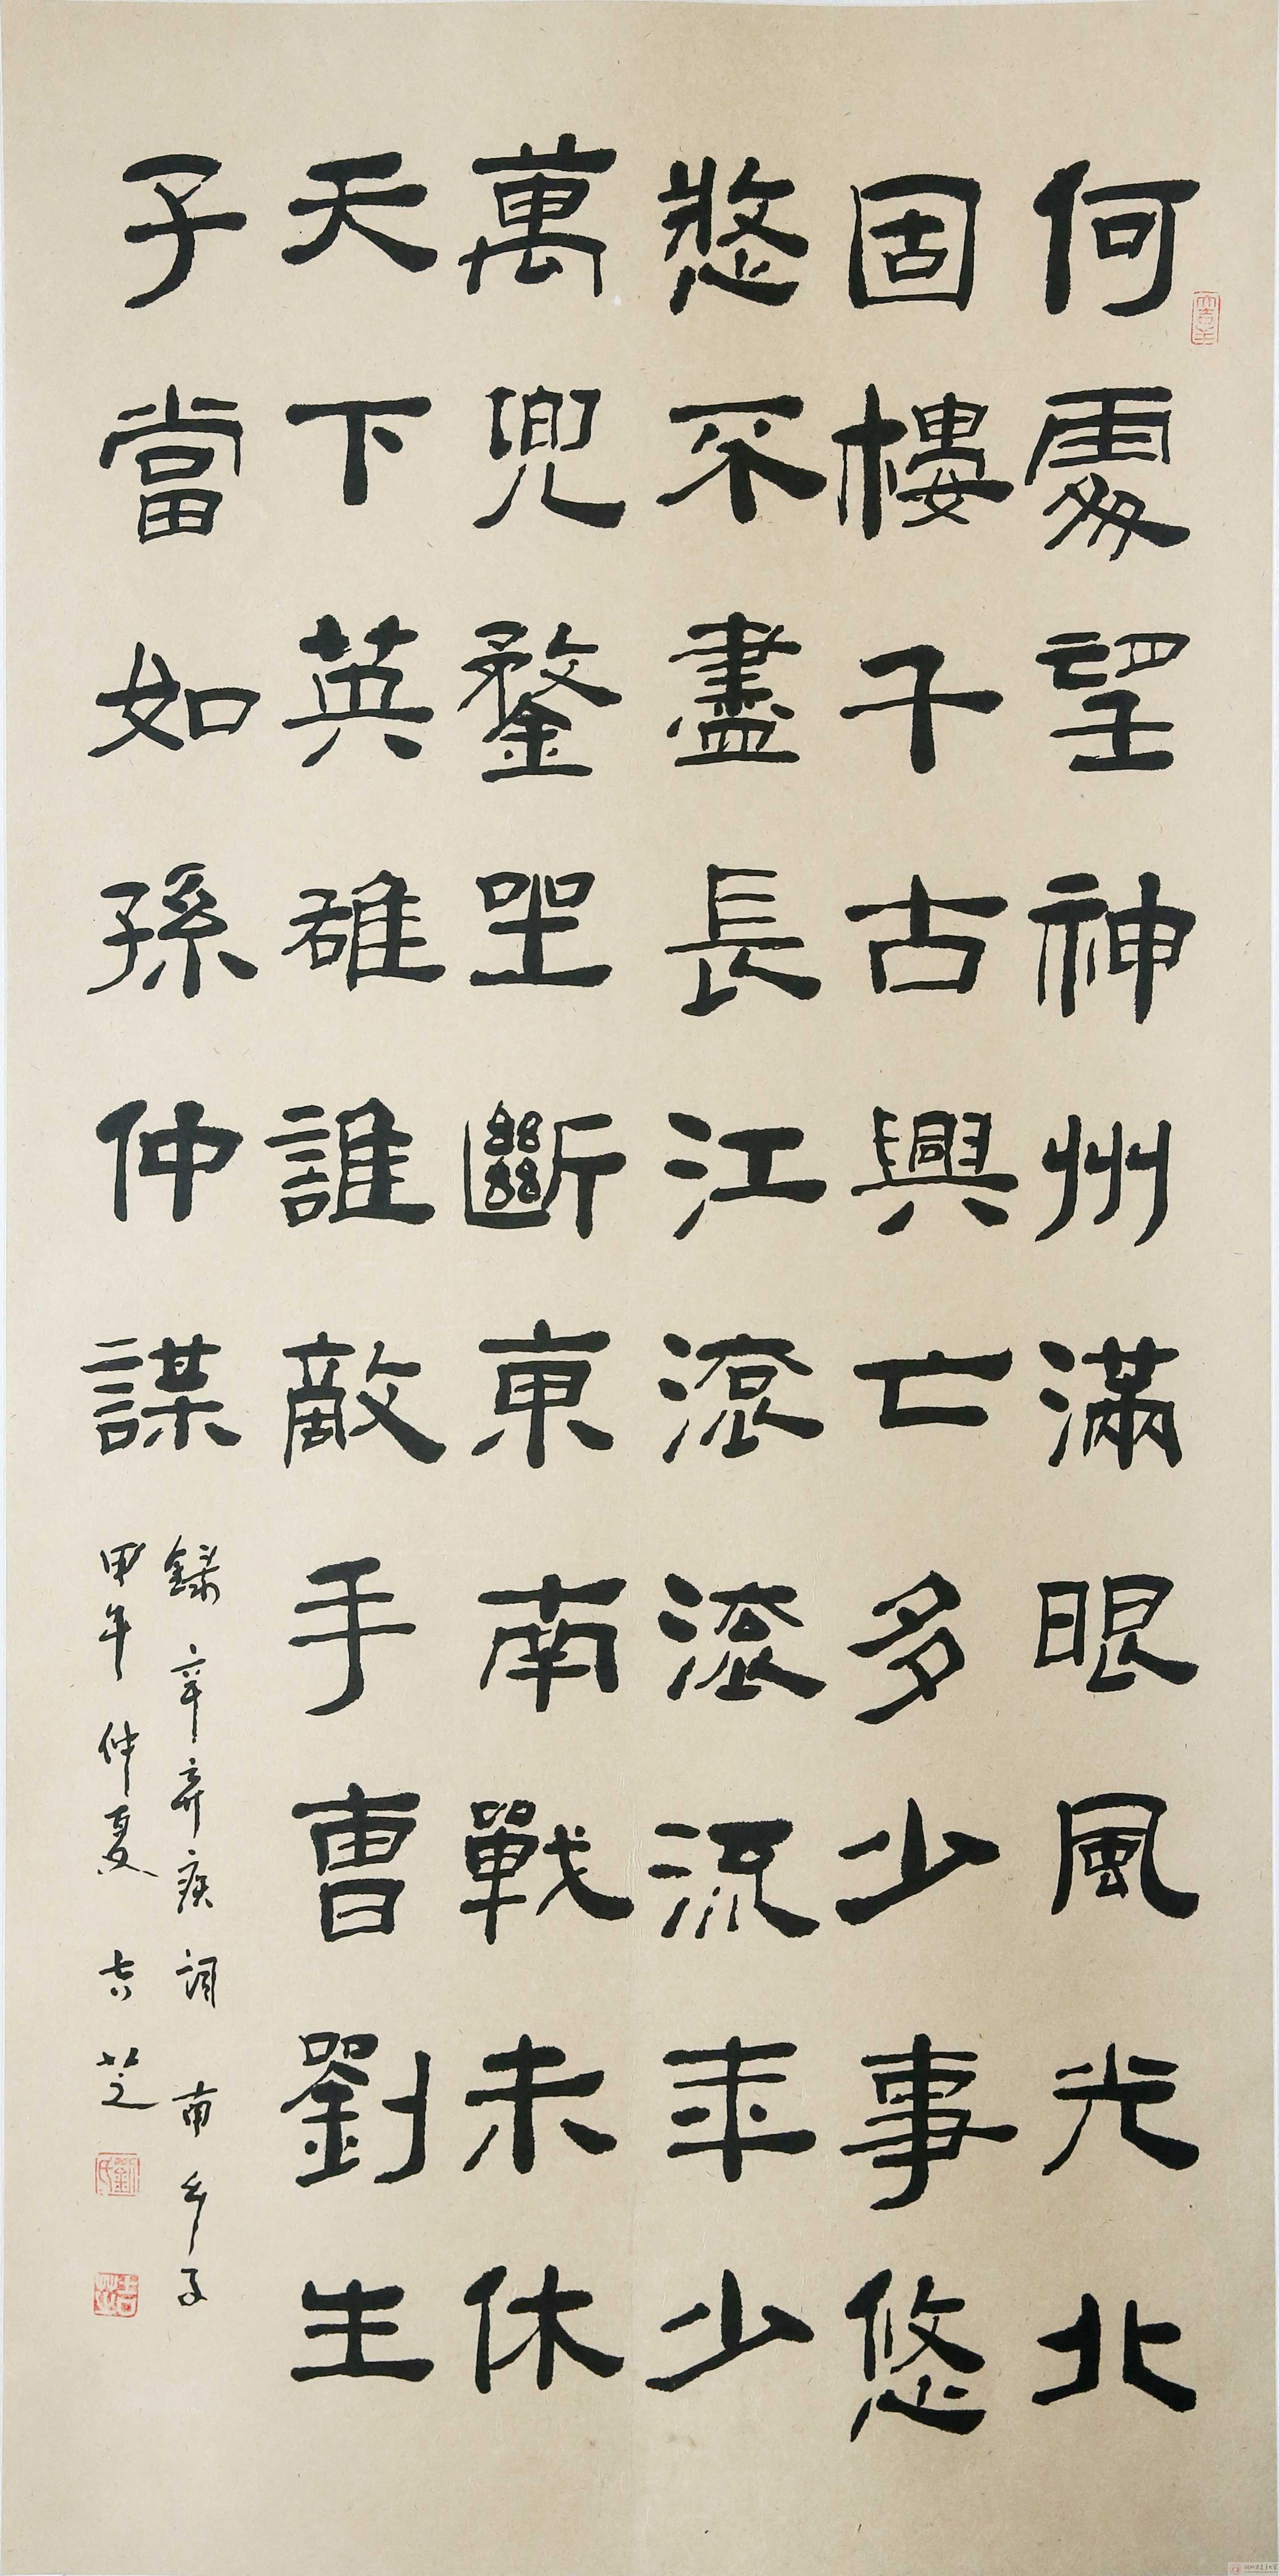 何處望神州滿眼風光北
固樓千古興亡多少事悠
悠不盡長江滾滾流年少
萬兜鍪坐斷東南戰未休
天下英雄誰敵手曹劉生
子當如孫仲謀
錄辛弃疾詞南乡子
甲午仲夏吉芝
劉氏